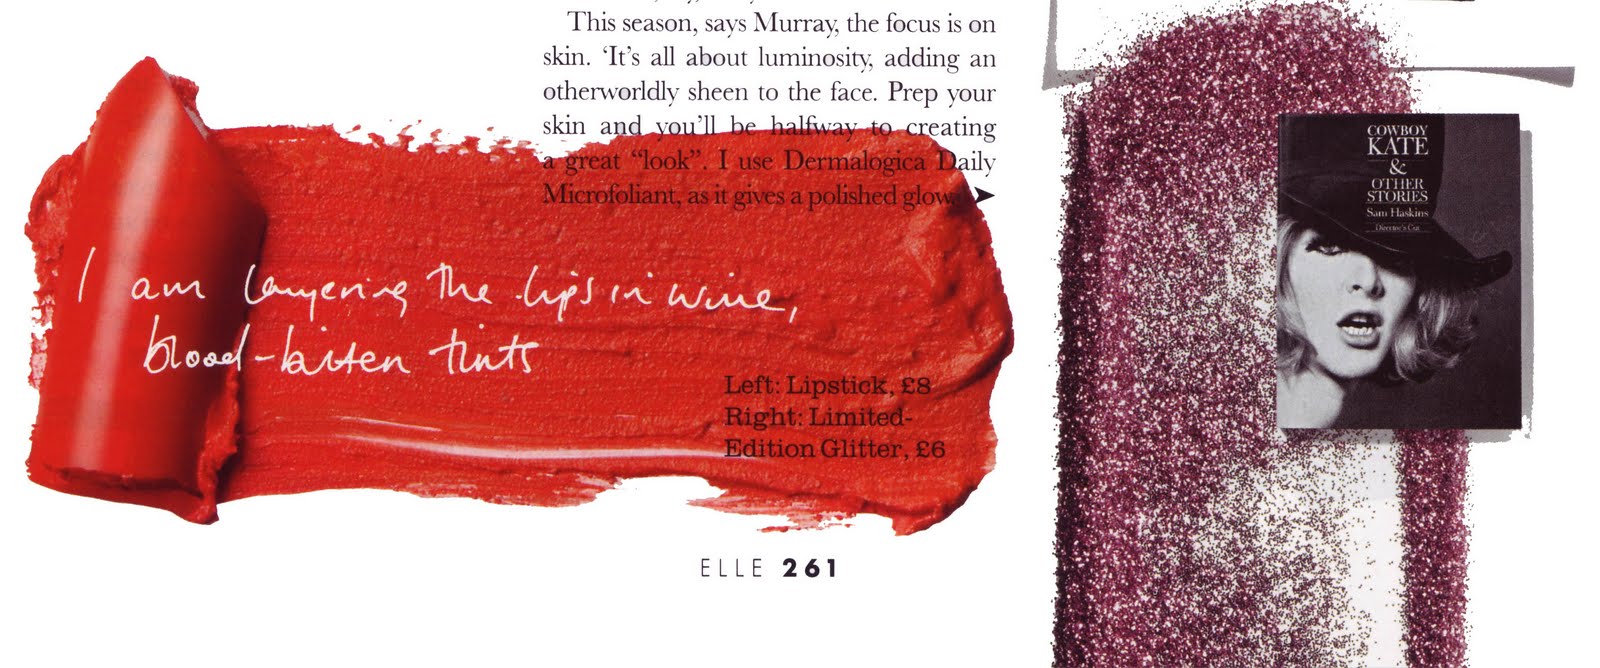 This season, says Murray, the focus is on
skin. ‘It’s all about luminosity, adding an
otherworldly sheen to the face. Prep your
skin and you’ll be halfway to creating
a great “look”. I use Dermalogica Daily
Microfoliant, as it gives a polished glow.
I am layering the lips in wine,
blood-bitten tints
Left: Lipstick, £8
Right: Limited-
Edition Glitter, £6
ELLE 261
COWBOY
KATE
&
OTHER
STORIES
Sam Haskins
Director's Cut